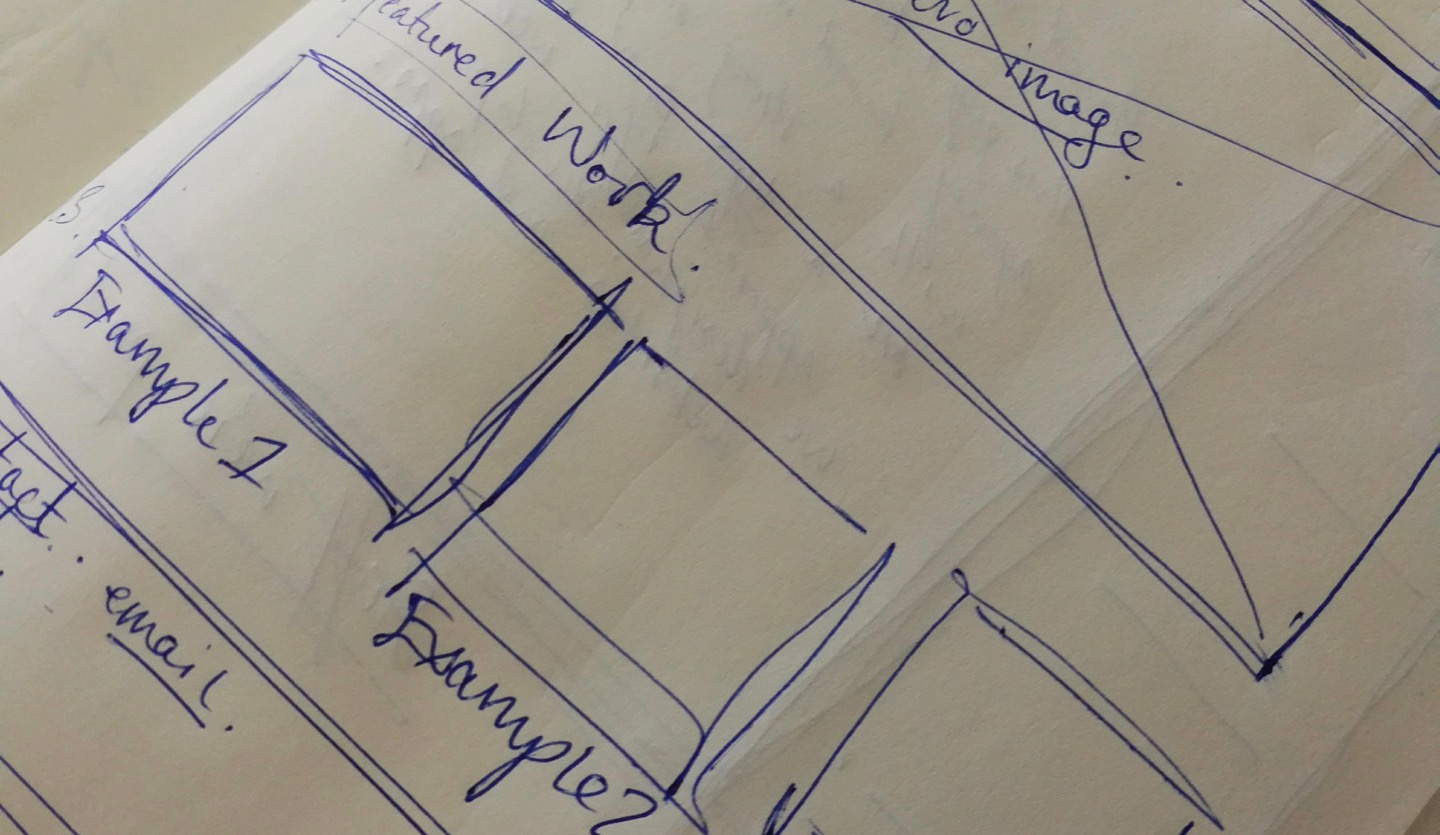 image...
Featured Work.
Example 1
Example 2
email.